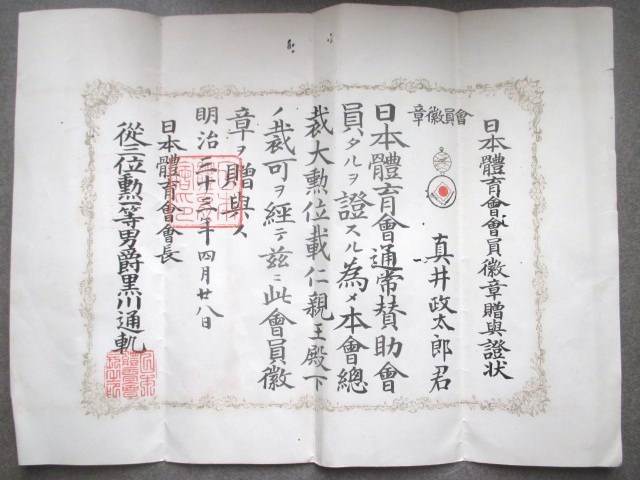 日本體育會會員徽章贈與證狀
會員徽章
真井政太郎君
日本體育會通常賛助會
員タルヲ證スル為メ本會總
裁大勲位載仁親王殿下
ノ裁可ヲ經テ茲ニ此會員徽
章ヲ贈與ス
明治三十三年四月廿八日
日本體育會會長
從三位勲一等男爵黒川通軌